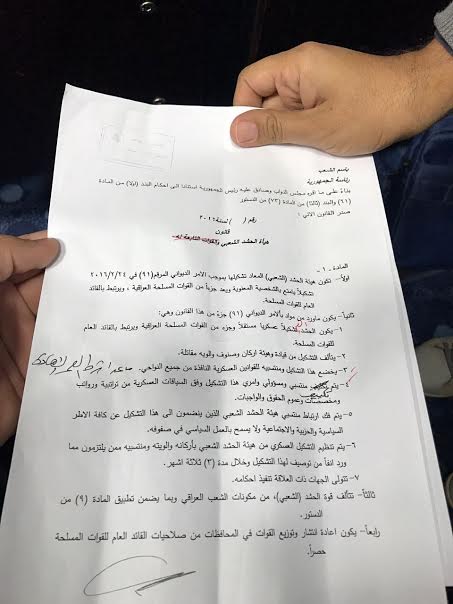 باسم الشعب
رئاسة الجمهورية
بناءً على ما اقره مجلس النواب وصادق عليه رئيس الجمهورية استناداً الى احكام البند (اولاً) من المادة
(٦١) والبند (ثالثاً) من المادة (٧٣) من الدستور
صدر القانون الاتي :
رقم ( ) لسنة ٢٠١٦
قانون
هيأة الحشد الشعبي والقوات التابعة له
المادة - ١ -
اولاً- تكون هيئة الحشد (الشعبي) المعاد تشكيلها بموجب الامر الديواني المرقم(٩١) في ٢٠١٦/٢/٢٤
تشكيلاً يتمتع بالشخصية المعنوية ويعد جزءاً من القوات المسلحة العراقية ، ويرتبط بالقائد
العام للقوات المسلحة.
ثانياً- يكون ماورد من مواد بالامر الديواني (٩١) جزء من هذا القانون وهي:
١- يكون الحشد تشكيلاً عسكريا مستقلا وجزء من القوات المسلحة العراقية ويرتبط بالقائد العام
للقوات المسلحة.
٢- يتألف التشكيل من قيادة وهيئة اركان وصنوف والويه مقاتلة.
٣- يخضع هذا التشكيل ومنتسبيه للقوانين العسكرية النافذة من جميع النواحي. ماعدا شرط العمر
٤- يتم منتسبي ومسؤولي وامري هذا التشكيل وفق السياقات العسكرية من تراتبية ورواتب
ومخصصات وعموم الحقوق والواجبات.
٥- يتم فك ارتباط منتسبي هيئة الحشد الشعبي الذين ينضمون الى هذا التشكيل عن كافة الاطر
السياسية والحزبية والاجتماعية ولا يسمح بالعمل السياسي في صفوفه.
٦- يتم تنظيم التشكيل العسكري من هيئة الحشد الشعبي بأركانه والويته ومنتسبيه ممن يلتزمون مما
ورد انفاً من توصيف لهذا التشكيل وخلال مدة (٣) ثلاثة اشهر.
٧- تتولى الجهات ذات العلاقة تنفيذ احكامه.
ثالثاً- تتألف قوة الحشد (الشعبي)، من مكونات الشعب العراقي وبما يضمن تطبيق المادة (٩) من
الدستور.
رابعاً- يكون اعادة انتشار وتوزيع القوات في المحافظات من صلاحيات القائد العام للقوات المسلحة
حصراً.